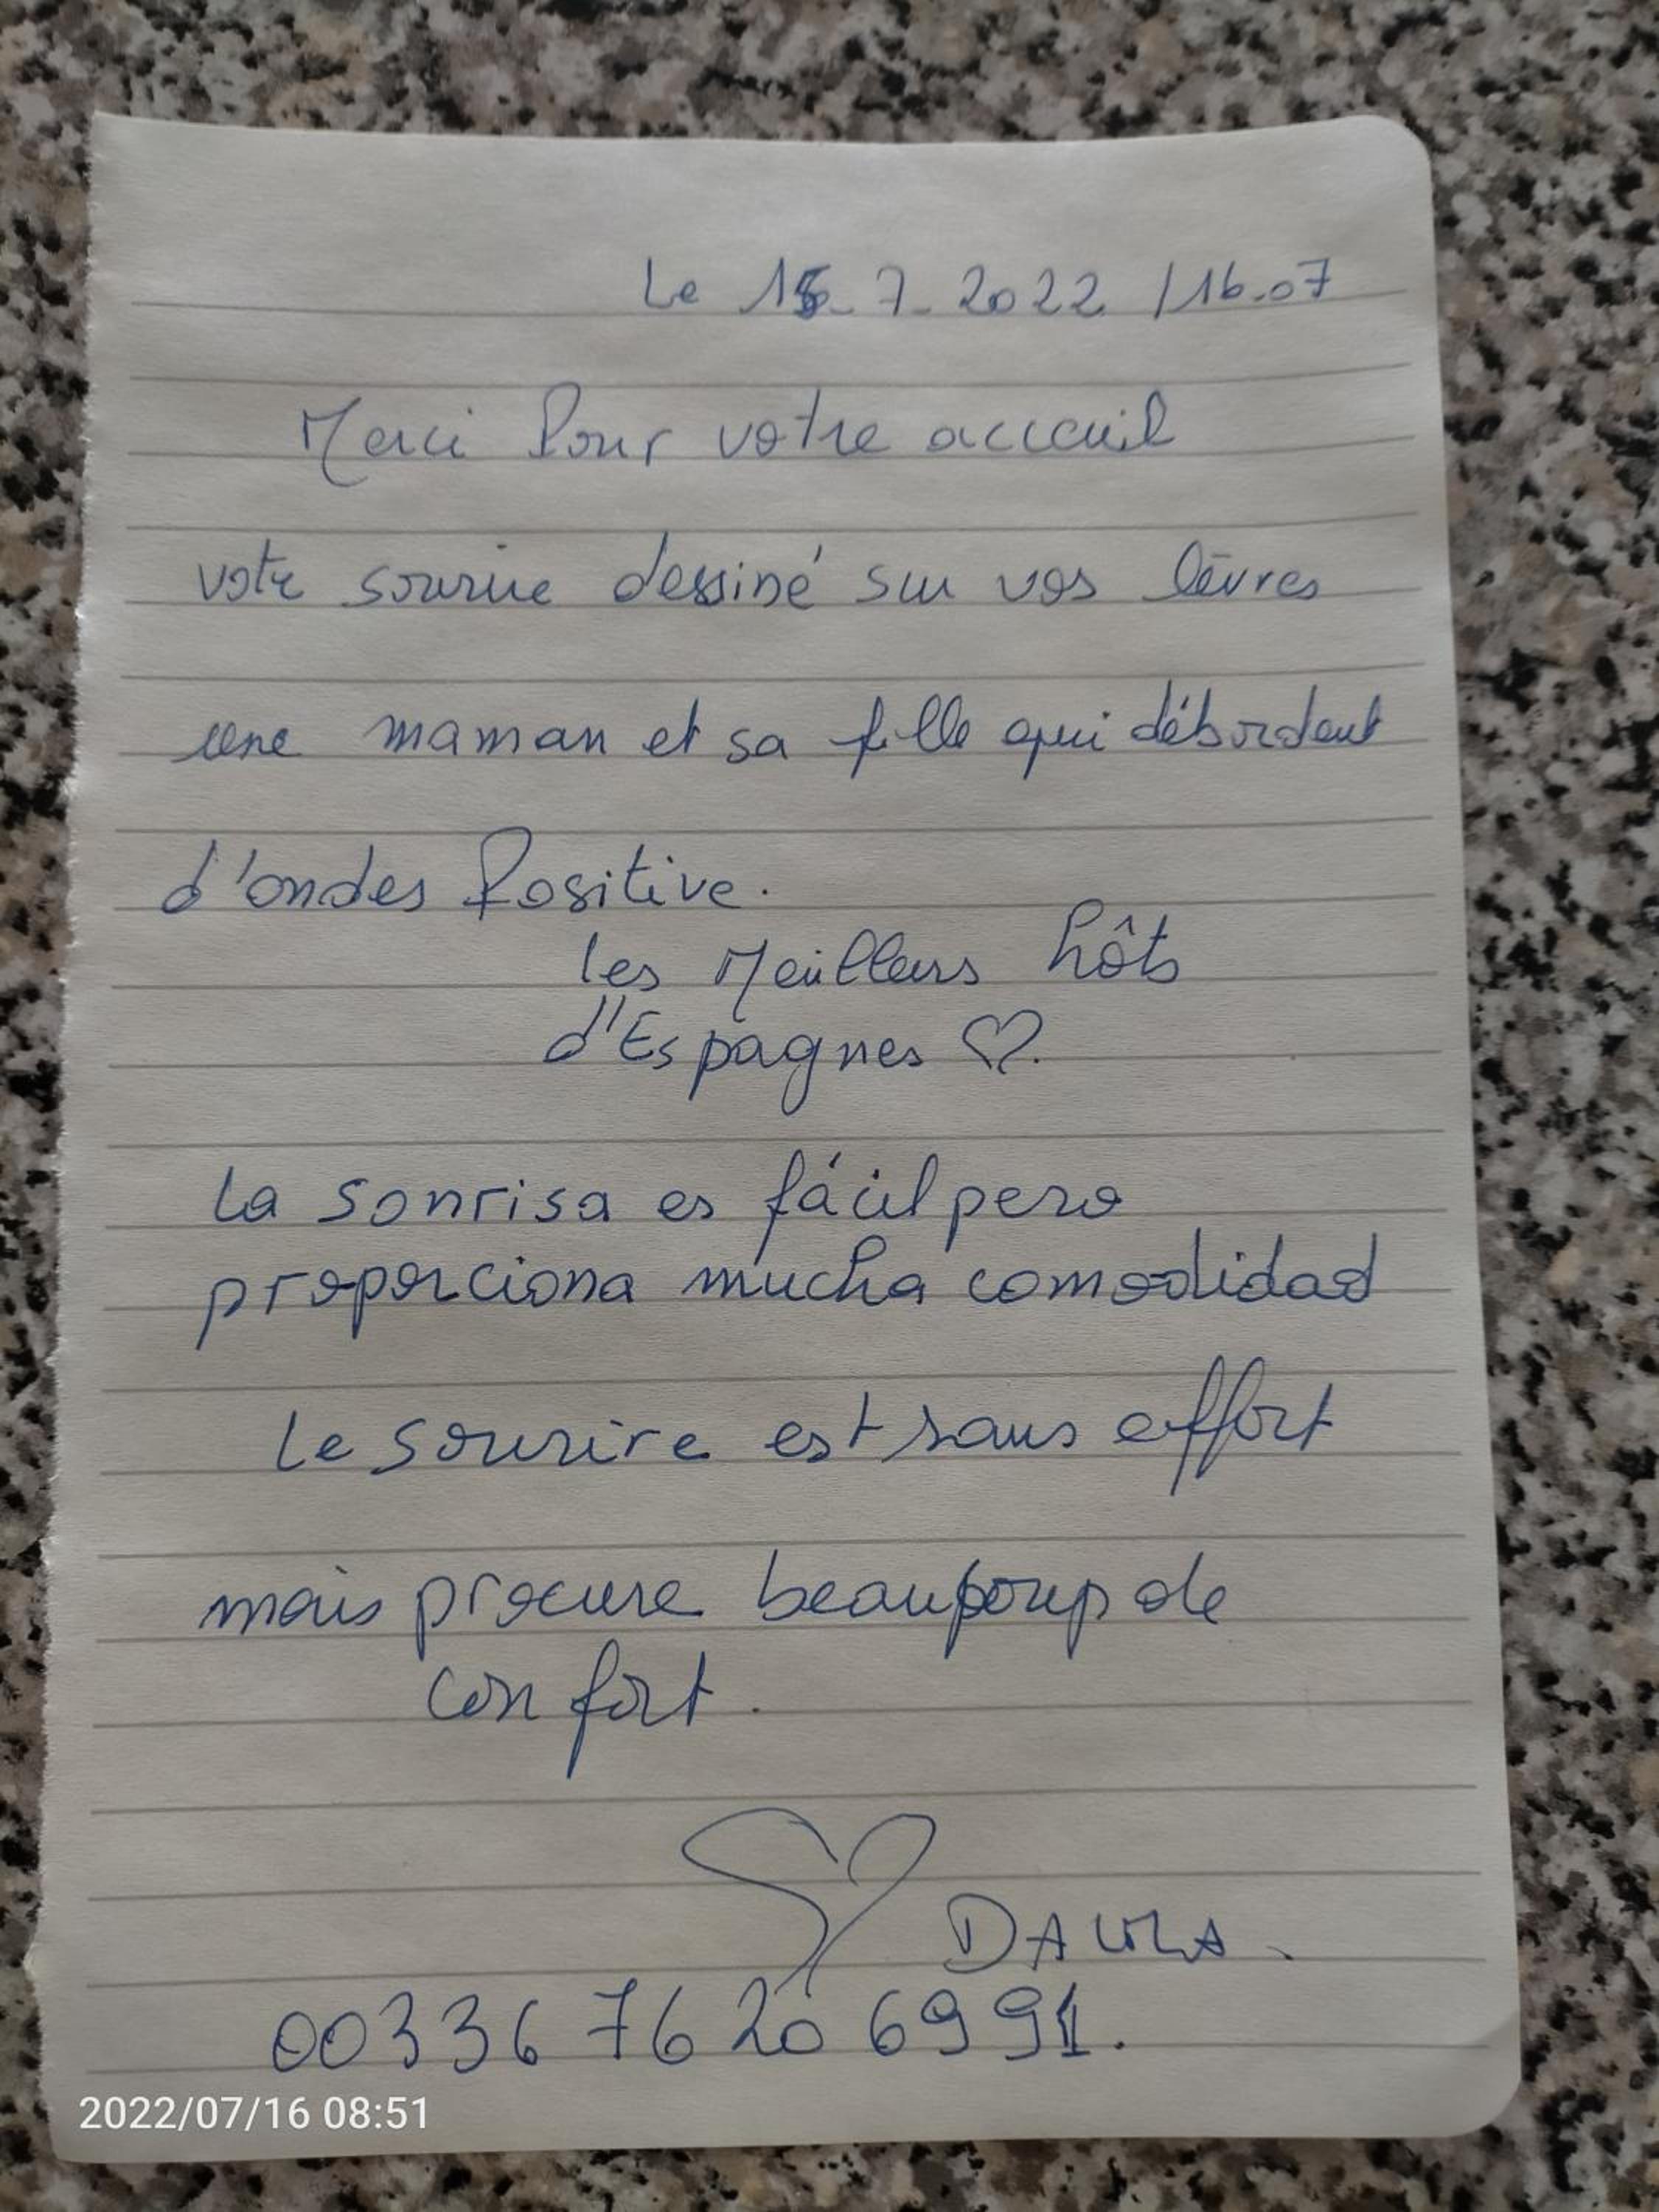 Le 15-7-2022 /16-07
Merci Pour votre acceuil
votre sourire dessiné sur vos lèvres
une maman et sa fille qui débordent
d'ondes Positive.
les Meilleurs hôts
d'Espagnes ♡.
la sonrisa es fácil pero
proporciona mucha comodidad
le sourire est sans effort
mais procure beaucoup de
confort.
00336 76 20 69 91.
2022/07/16 08:51